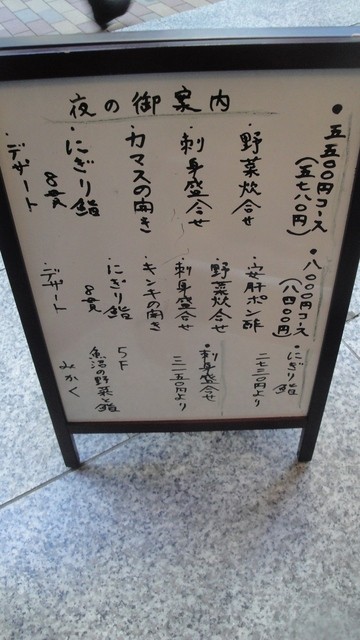 夜の御案内
・五五〇〇円コース
(五七八〇円)
・野菜炊合せ
・刺身盛合せ
・カマスの開き
・にぎり鮨
8貫
・デザート
・八〇〇〇円コース
(八四〇〇円)
・安肝ポン酢
・野菜炊合せ
・刺身盛合せ
・キンキの開き
・にぎり鮨
8貫
・デザート
・にぎり鮨
二七三〇円より
・刺身盛合せ
三一五〇円より
5F
魚沼の野菜と鮨
みかく